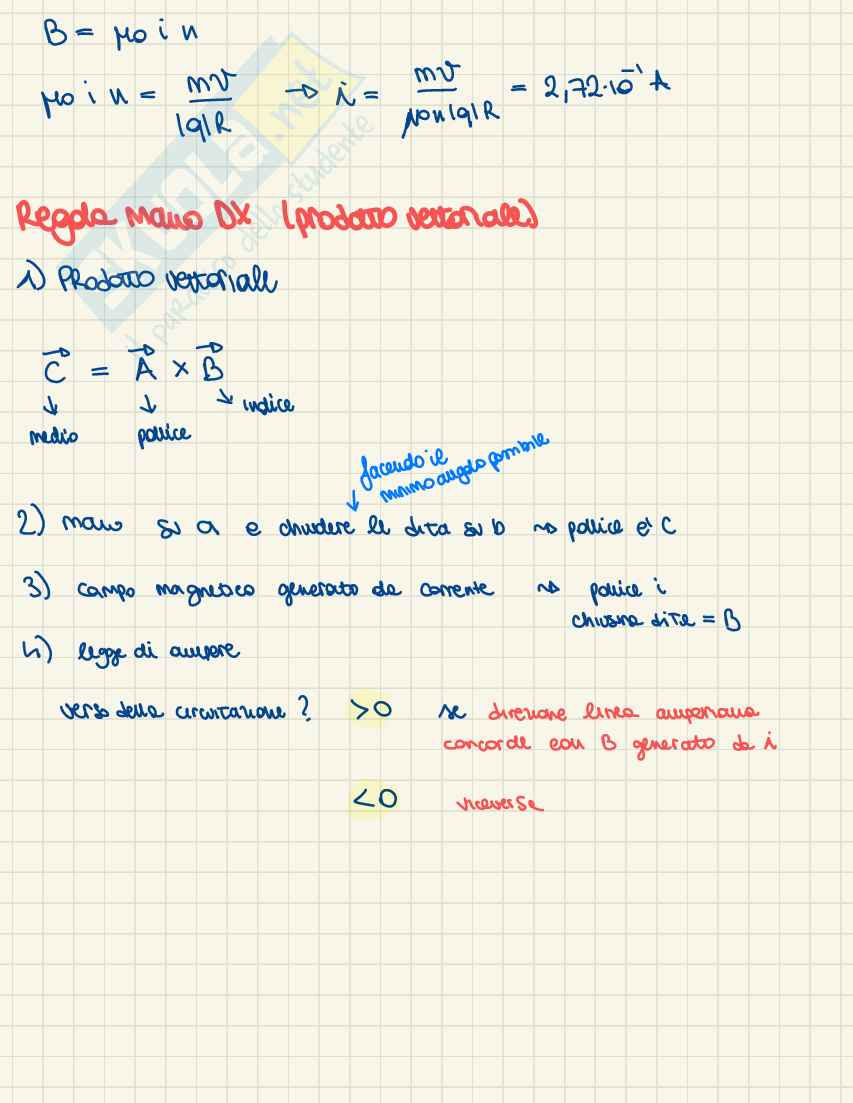 B = μ0 i n
μ0 i n = mv / |q|R → i = mv / μ0 n |q| R = 2,72·10⁻¹ A
SKUOLA.net
il paradiso dello studente
Regola mano DX (prodotto vettoriale)
1) PRodotto vettoriale
C = A × B
medio pollice indice
facendo il
minimo angolo possibile
2) mano su a e chiudere le dita su b ⇝ pollice è C
3) campo magnetico generato da corrente ⇝ pollice i
chiusura dita = B
4) legge di ampere
verso della circuitazione ? >0 se direzione linea amperiana
concorde con B generato da i
<0 viceversa